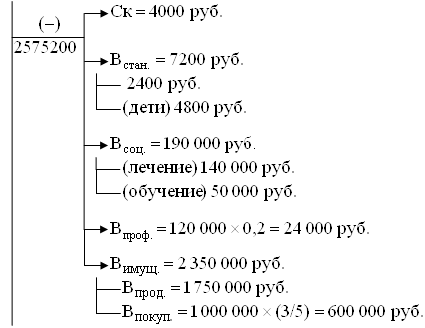 (−)
2575200
Ск = 4000 руб.
Встан. = 7200 руб.
2400 руб.
(дети) 4800 руб.
Всоц. = 190 000 руб.
(лечение) 140 000 руб.
(обучение) 50 000 руб.
Впроф. = 120 000 × 0,2 = 24 000 руб.
Вимущ. = 2 350 000 руб.
Впрод. = 1750 000 руб.
Впокуп. = 1000 000 × (3/5) = 600 000 руб.